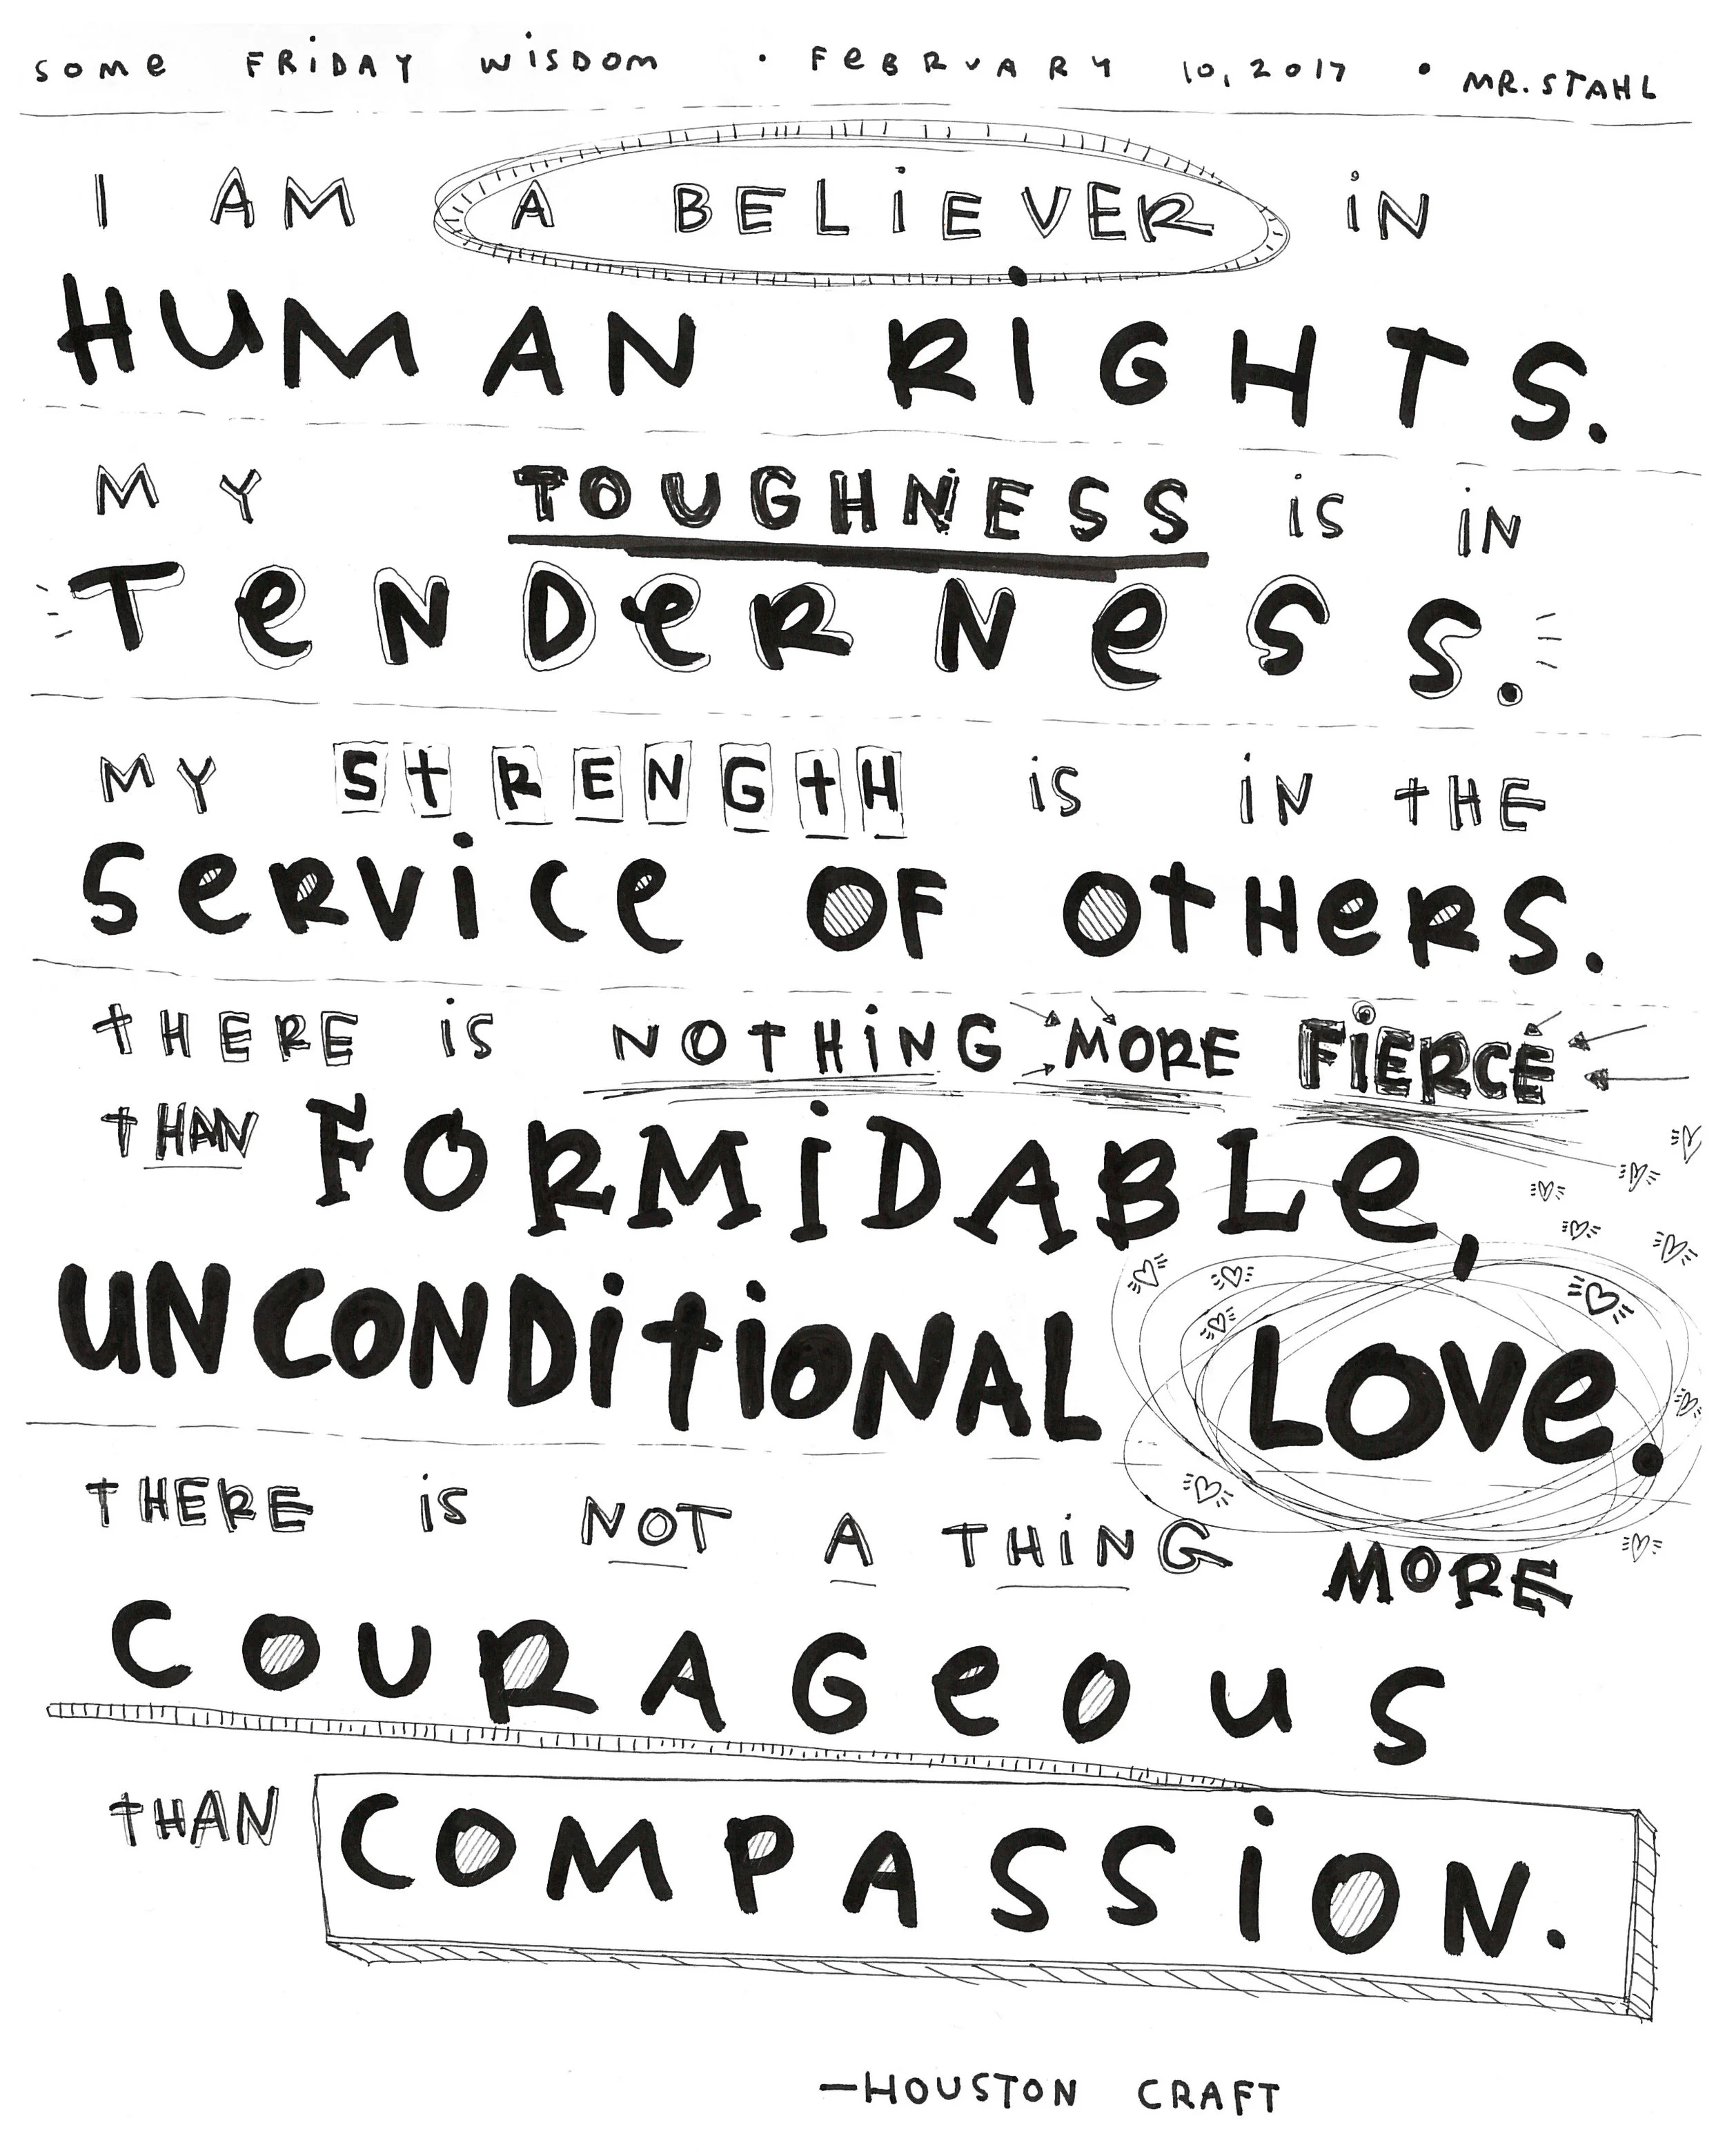 SOMe FRiDAY WiSDOM • FeBRUARY 10, 2017 • MR. STAHL
I AM A BELiEVER iN
HUMAN RiGHTS.
MY TOUGHNESS iS iN
TeNDeRNeSS.
MY StRENGtH iS iN tHE
SeRViCe OF OtHeRS.
tHERE iS NOtHiNG MORE FiERCE
tHAN FORMiDABLe,
UNCONDitiONAL LOVe.
tHERE iS NOT A THiNG MORE
COURAGeOUS
tHAN COMPASSiON.
—HOUSTON CRAFT